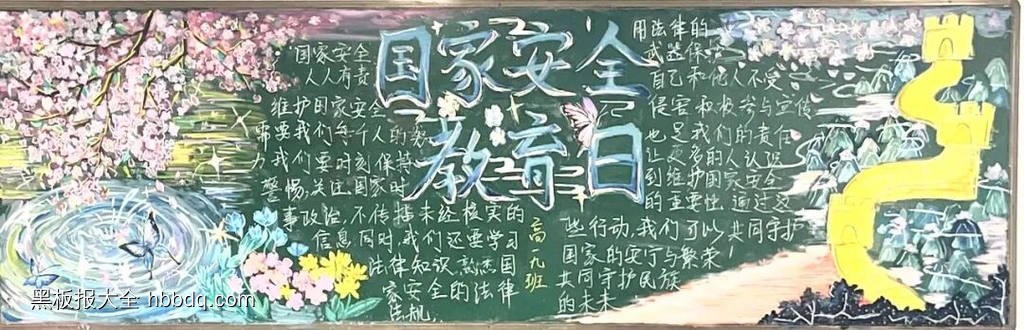 国家安全
教育日
国家安全
人人有责
维护国家安全
需要我们每个人的努
力我们要时刻保持
警惕,关注国家时
事政治,不传播未经核实的
信息,同时,我们还要学习
法律知识,熟悉国
家安全的法律
法规,
高一九班
用法律的
武器保护
自己和他人不受
侵害积极参与宣传
也是我们的责任
让更多的人认识
到维护国家安全
的重要性,通过这
些行动,我们可以共同守护
国家的安宁与繁荣!
共同守护民族
的未来
黑板报大全 hbbdq.com